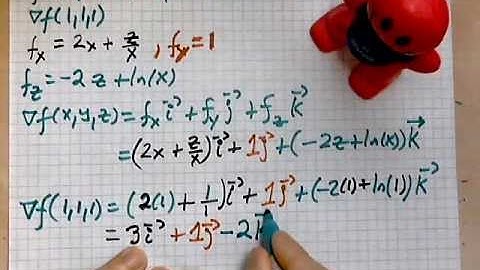 ∇f(1,1,1)
fₓ = 2x + z/x , f_y = 1
f_z = -2z + ln(x)
∇f(x,y,z) = fₓ i⃗ + f_y j⃗ + f_z k⃗
= (2x + z/x) i⃗ + 1 j⃗ + (-2z + ln(x)) k⃗
∇f(1,1,1) = (2(1) + 1/1) i⃗ + 1 j⃗ + (-2(1) + ln(1)) k⃗
= 3 i⃗ + 1 j⃗ - 2 k⃗